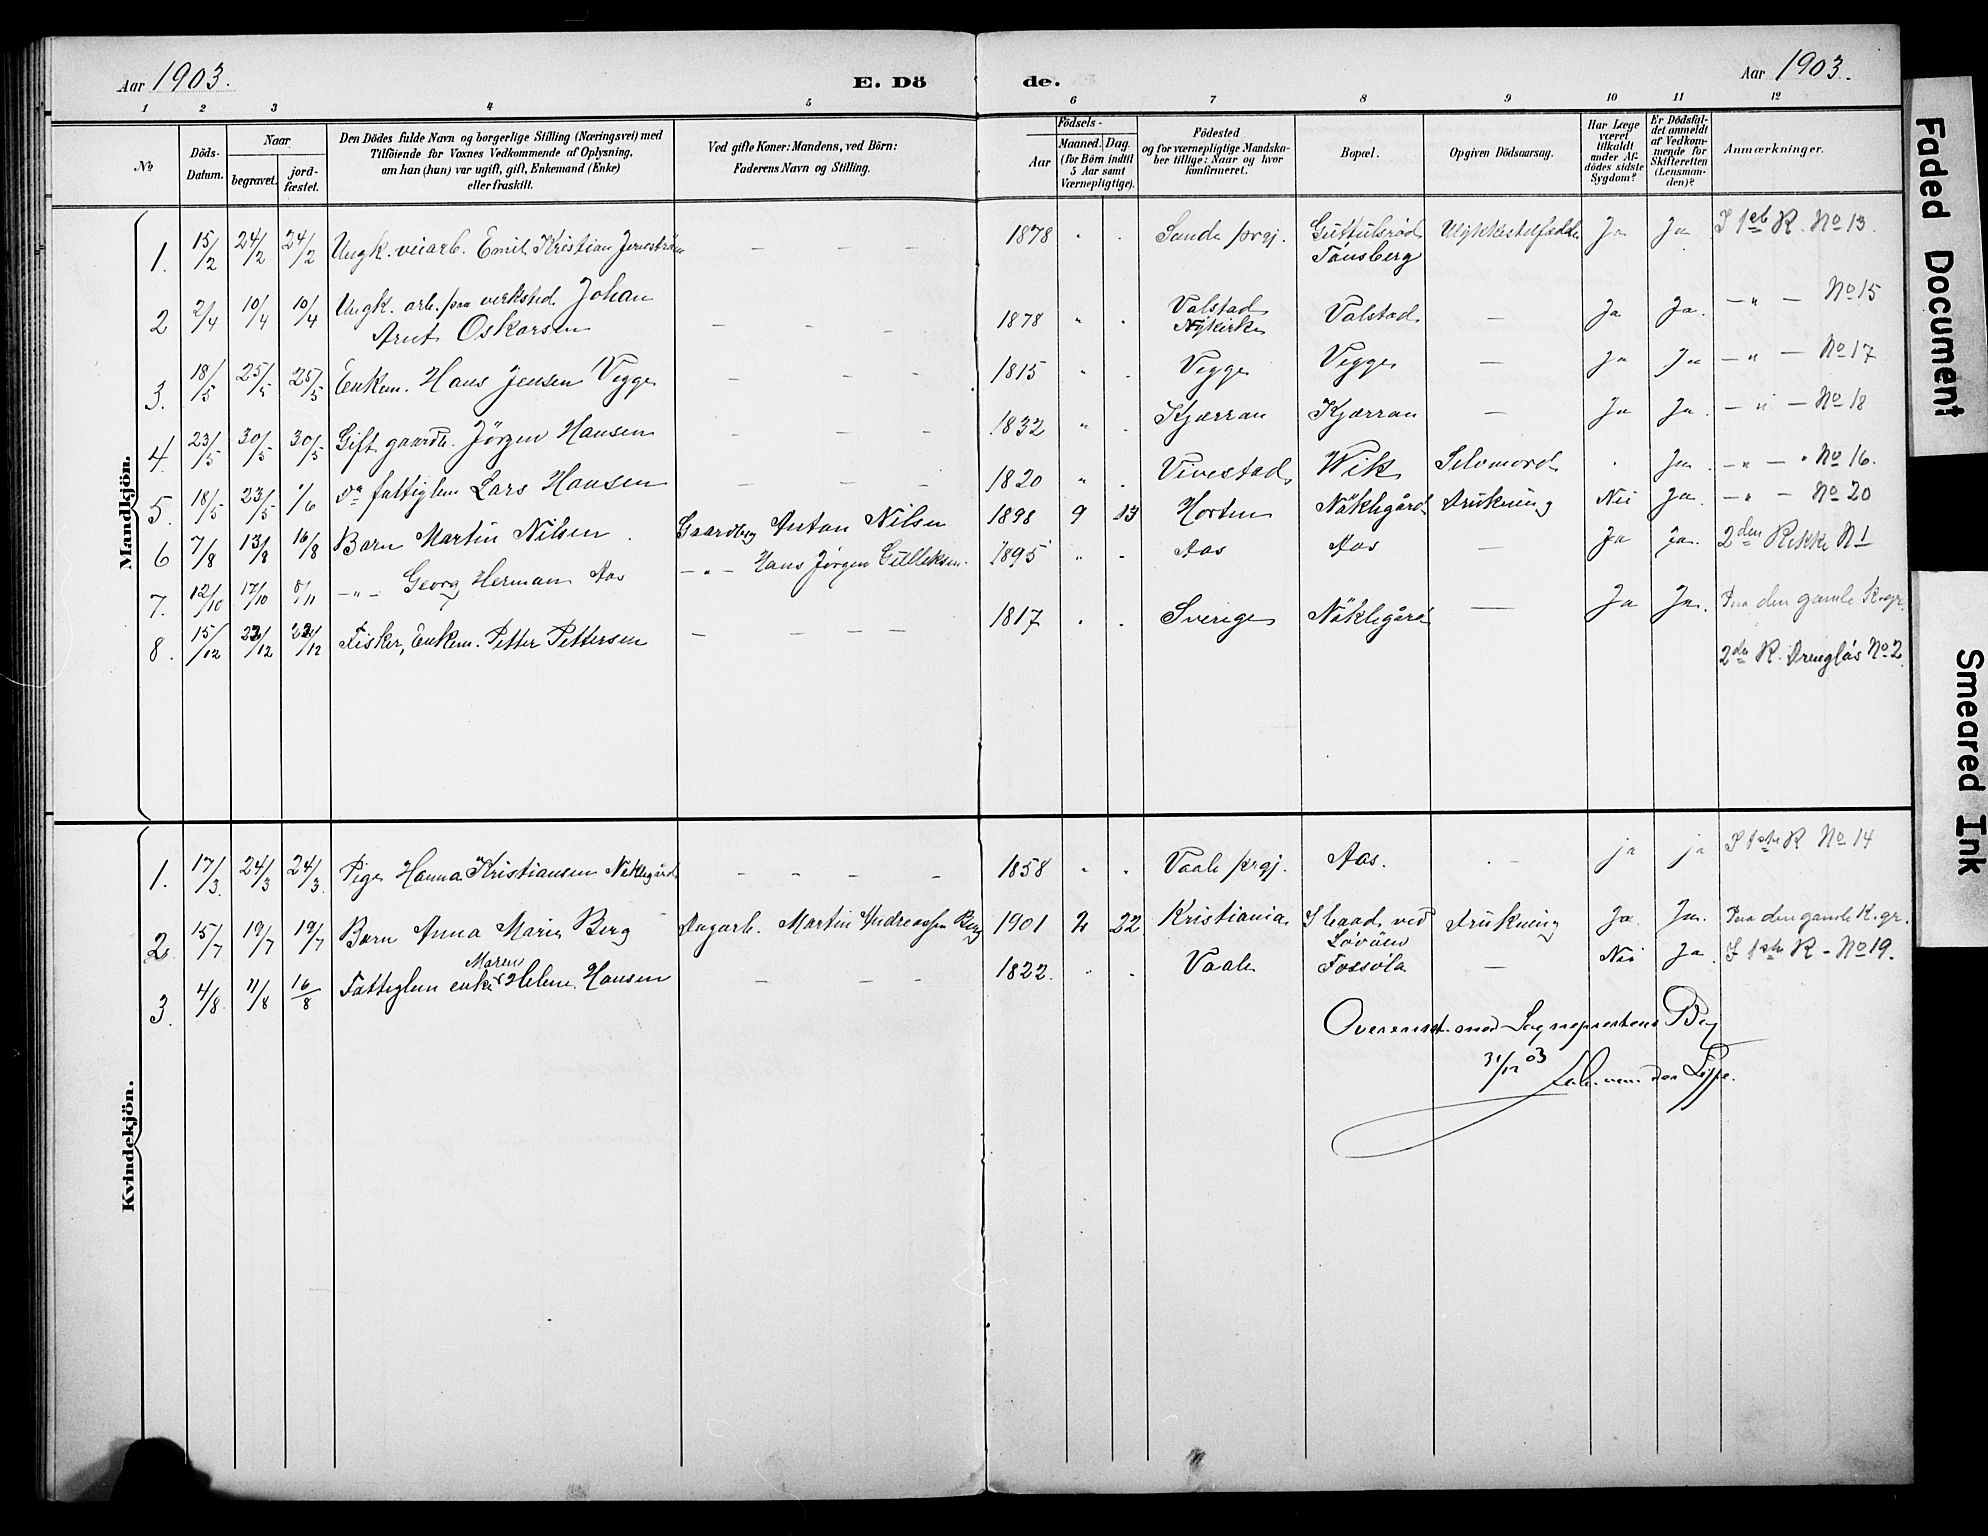 Aar 1903.
E. Dö
de.
Aar 1903.
1 2 3 4 5 6 7 8 9 10 11 12
No
Döds-Datum.
Naar
begravet.
jordfæstet.
Den Dödes fulde Navn og borgerlige Stilling (Næringsvei) med
Tilföiende for Voxnes Vedkommende af Oplysning,
om han (hun) var ugift, gift, Enkemand (Enke)
eller fraskilt.
Ved gifte Koner: Mandens, ved Börn:
Faderens Navn og Stilling.
Födsels-
Aar
Maaned. Dag.
(for Börn indtil
5 Aar samt
Værnepligtige).
Födested
og for værnepligtige Mandska-
ber tillige: Naar og hvor
konfirmeret.
Bopæl.
Opgiven Dödsaarsag.
Har Læge
været
tilkaldt
under Af-
dödes sidste
Sygdom?
Er Dödsfal-
det anmeldt
af Vedkom-
mende for
Skifteretten
(Lensman-
den)?
Anmærkninger.
Mandkjön.
1. 15/2 24/2 24/2 Ungk. veiarb. Emil Kristian — — — 1878 " . Sande prgj. Guttulsrød Tönsberg Ja Ja I 1ste R. No 13.
2 2/4 10/4 10/4 Ungk. arb. paa verksted Johan
Arnt Oskarsen — — — 1878 " . Valstad Nykirke Valstad — Ja Ja. — " — No 15
3. 18/5 25/5 25/5 Enkem. Hans Jensen Vegge — — — 1815 " . Vegge Vegge — Ja Ja — " — No 17
4. 23/5 30/5 30/5 Gift gaardb. Jörgen Hansen — — — 1832 " . Kjærran Kjærran — Ja Ja. — " — No 18
5. 18/5 23/5 1/6 do fattiglem Lars Hansen — — — 1820 " . Vivestad Wik Selvmord . Ja. — " — " No 16.
6 7/8 13/8 16/8 Barn Martin Nilsen. Gaardbr. Anton Nilsen 1898 9 13 Horten Näklegård Drukning Nei Ja. — " — No 20
7. 12/10 17/10 8/11 — " — Georg Herman Aas — " — Hans Jørgen Gulleksen. 1895 " . Aas Aas — Ja Ja. 2den Rekke N 1
8. 15/12 22/12 22/12 Fisker, Enkem. Petter Pettersen — — — — 1817 . . Sverige Näklegård — Ja Ja. Paa den gamle K.gr.
2den R. No 2.
Kvindekjön.
1. 17/3 24/3 24/3 Pige Hanna Kristiansen Näklegård — — — — 1858 " . Vaale prgj. Aas. — ja ja I 1ste R No 14
2. 15/7 19/7 19/7 Barn Anna Marie Berg Dagarb. Martin Andreassen Berg 1901 2 22 Kristiania I baad ved Lövöen Drukning Ja. Ja. Paa den gamle K.gr.
3. 4/8 11/8 16/8 Fattiglem enke Maren Helene Hansen — — — 1822. . . Vaale — Nei Ja. I 1ste R - No 19.
Overenst. med Sogneprestens Bog
31/12 03
von der Lippe.
Faded Document
Smeared Ink